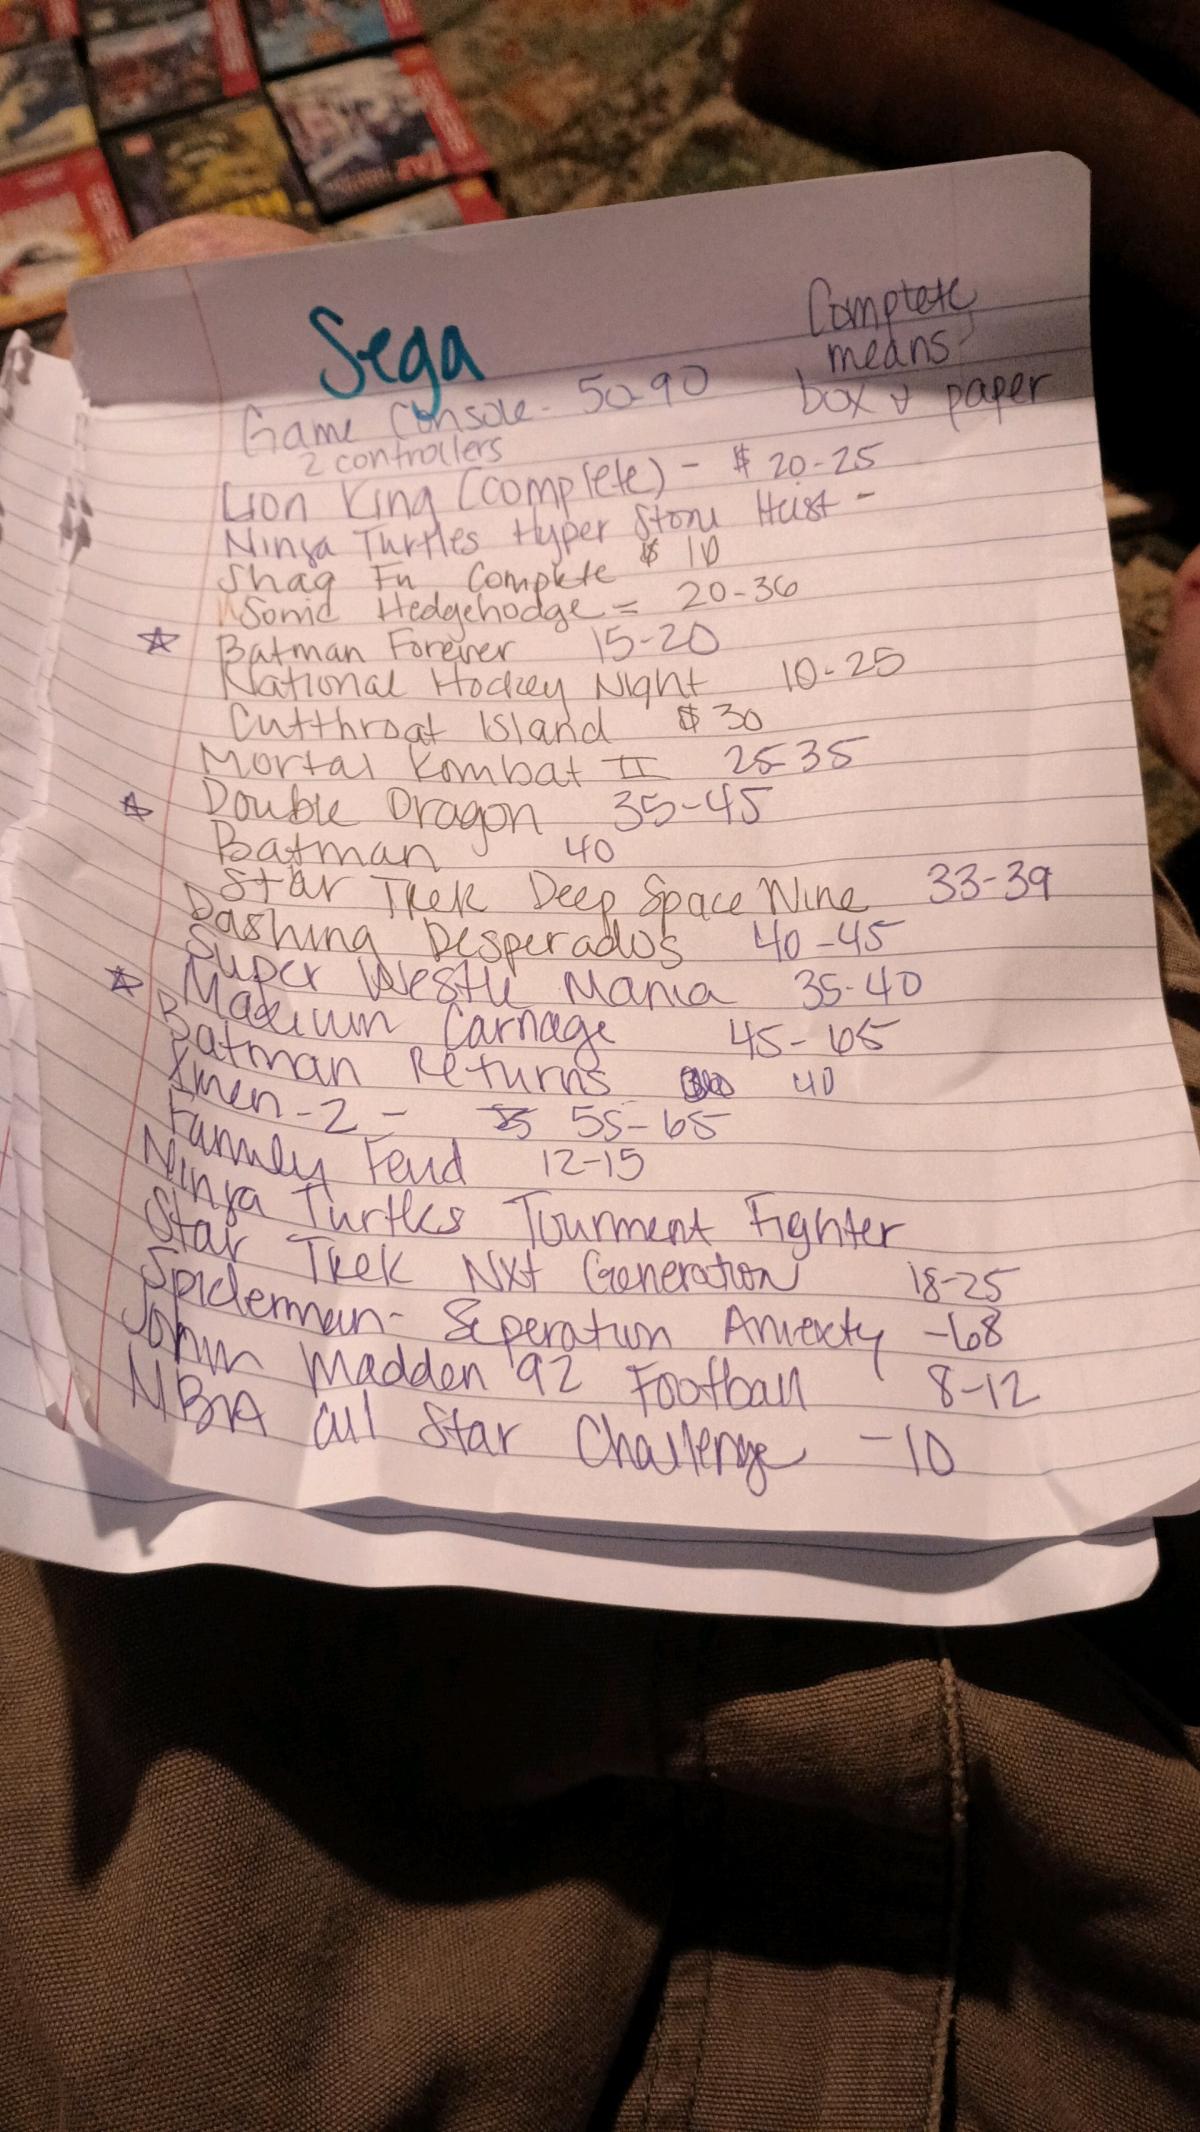 Sega
Complete
means
box & paper
Game Console - 50-90
2 controllers
Lion King (complete) - $20-25
Ninja Turtles Hyper Stone Heist -
Shaq Fu Complete $10
Sonic Hedgehodge = 20-36
☆ Batman Forever 15-20
National Hockey Night 10-25
Cutthroat Island $30
Mortal Kombat II 25-35
☆ Double Dragon 35-45
Batman 40
Star Trek Deep Space Nine 33-39
Dashing Desperados 40-45
Super Westle Mania 35-40
☆ Maximum Carnage 45-65
Batman Returns 40
Xmen-2 - 55-65
Family Feud 12-15
Ninja Turtles Tourment Fighter
Star Trek Nxt Generation 18-25
Spiderman- Seperation Anxexty -68
John Madden '92 Football 8-12
NBA All Star Challenge -10